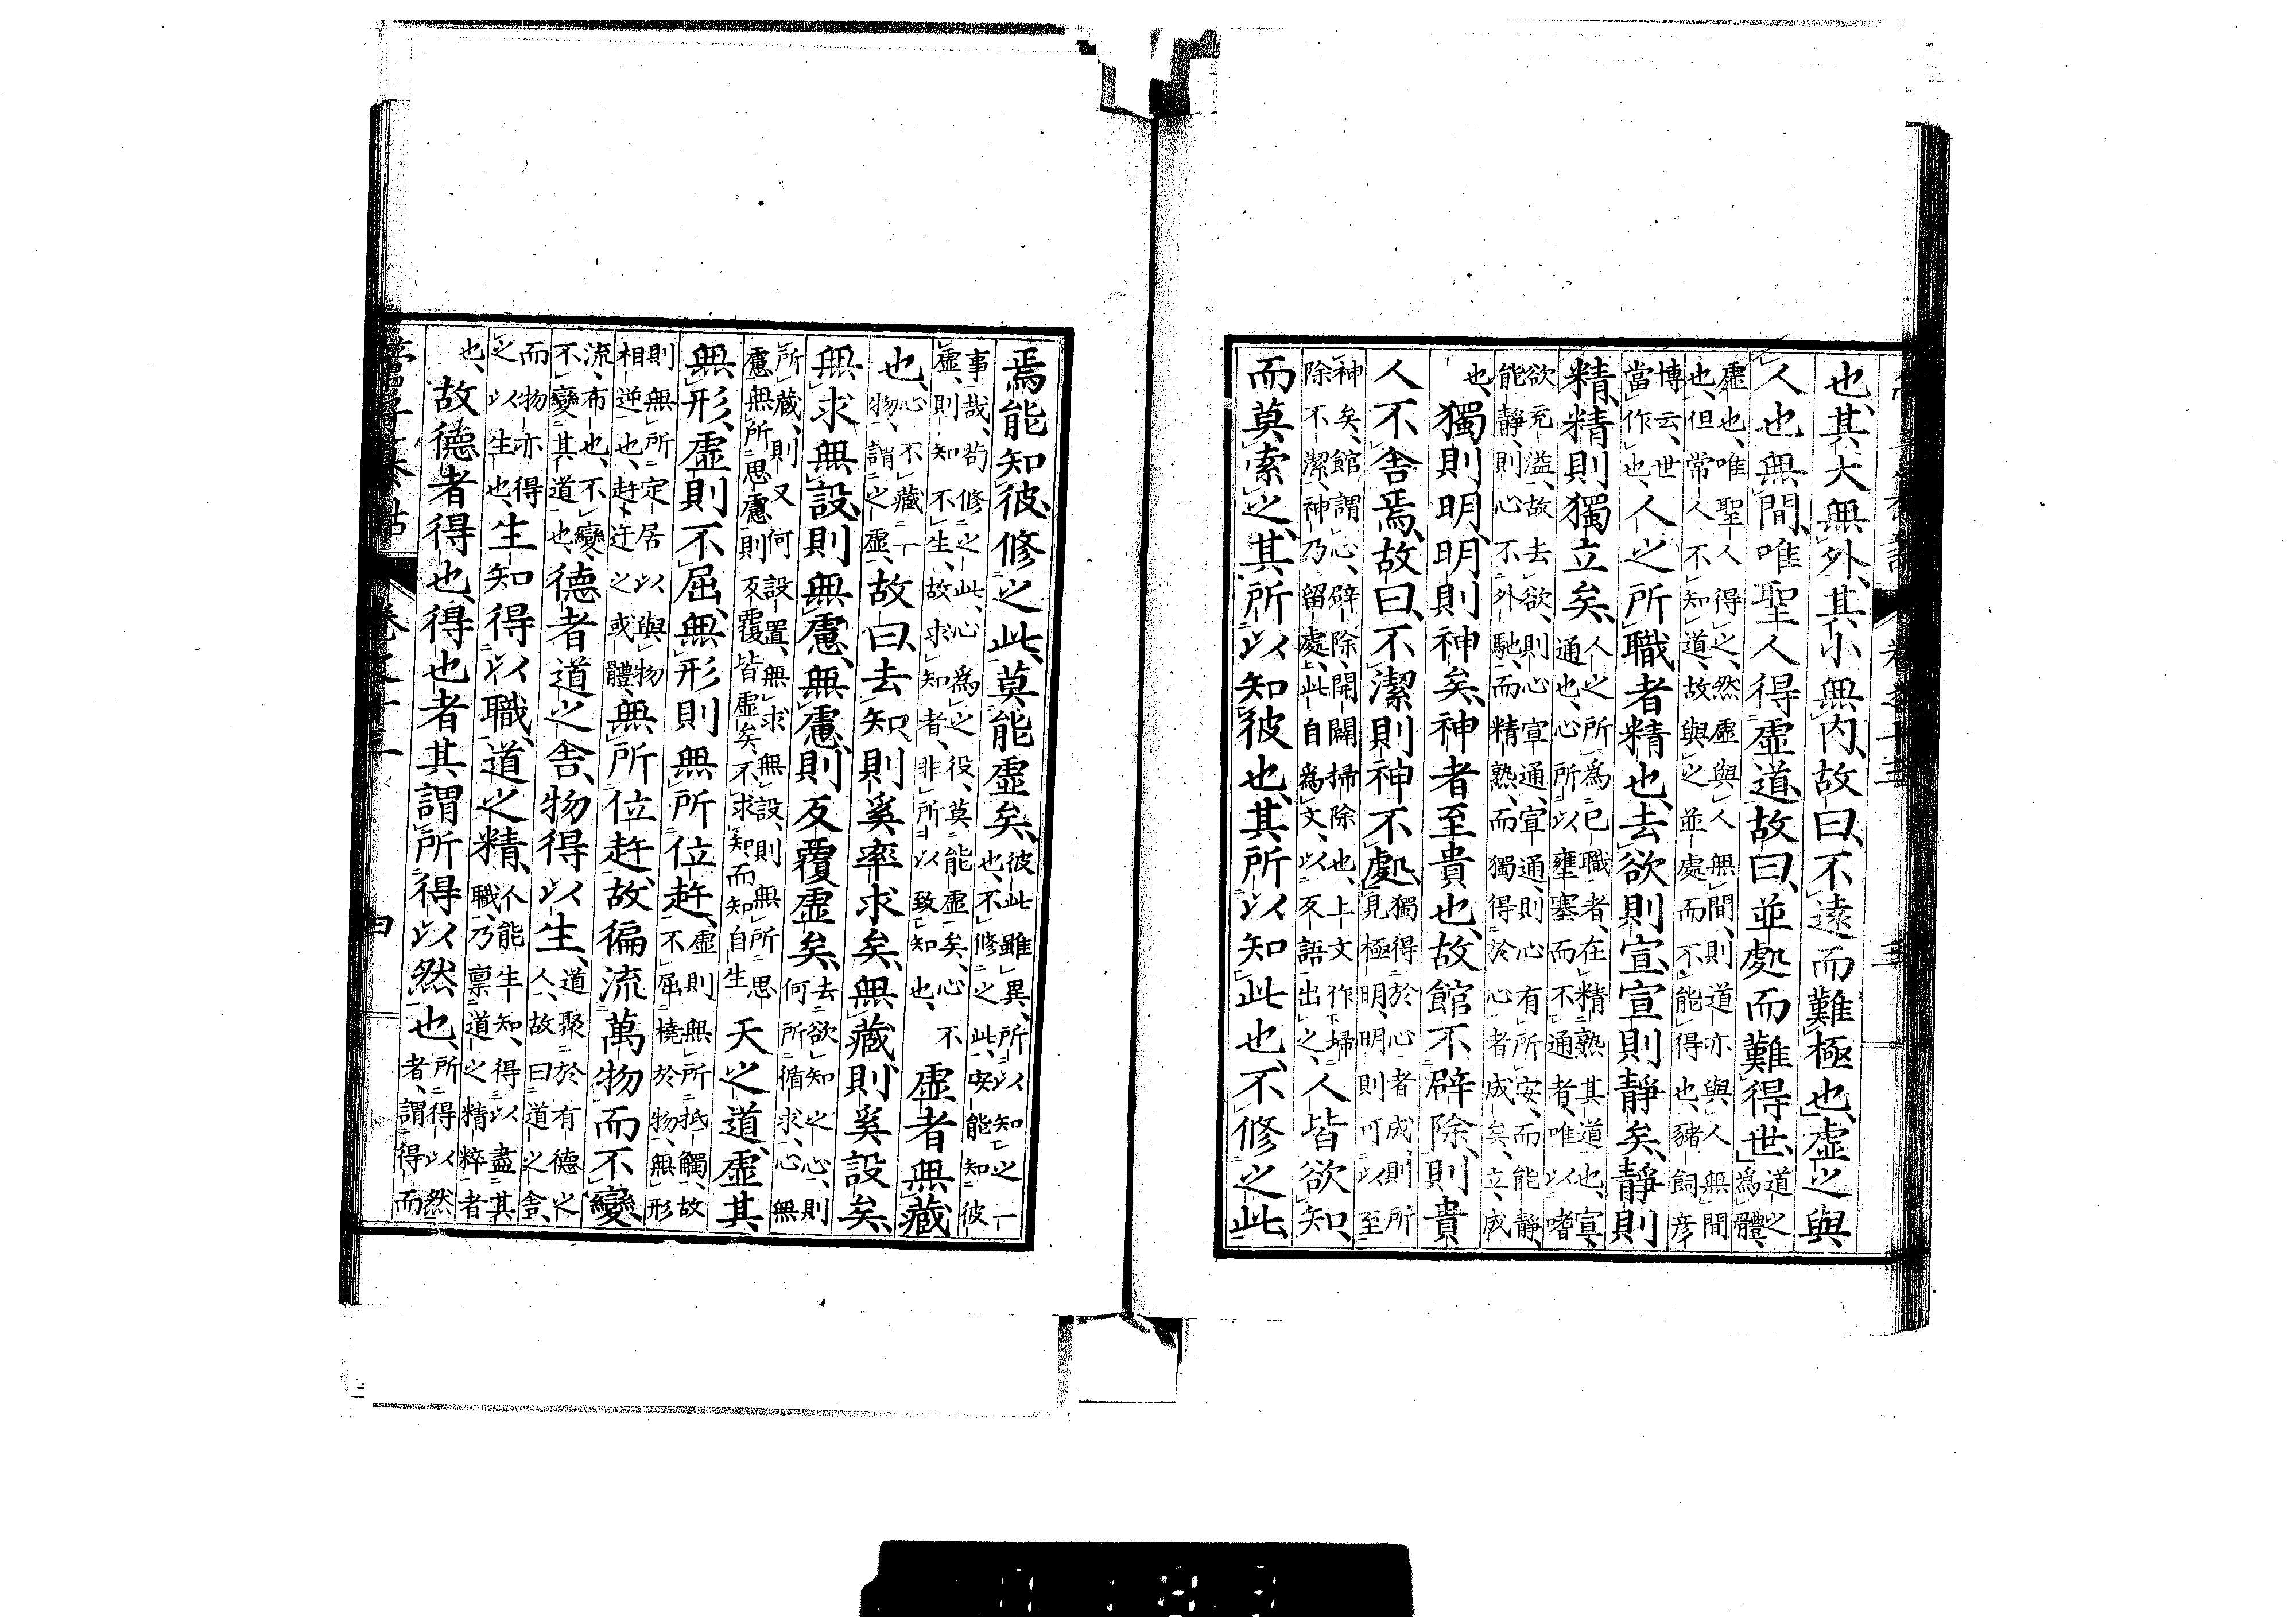 也、其大無外、其小無内、故曰、不遠而難極也、虛之與
人也無間、唯聖人得虛道、故曰、並處而難得世、道之
爲體、
虛也、唯聖人得之、然虛與人無間、則道亦與人無間
也、但常人不知道、故與之並處而不能得也、豬飼彦
博云、世
當作也、人之所職者精也、去欲則宣、宣則靜矣、靜則
精、精則獨立矣、人之所爲已職者、在精熟其道也、宣、
通也、心所以壅塞而不通者、唯以嗜
欲充溢、故去欲、則心宣通、宣通、則心有所安、而能靜、
能靜、則心不外馳、而精熟、而獨得於心者成矣、立、成
也、獨則明、明則神矣、神者至貴也、故館不辟除、則貴
人不舍焉、故曰、不潔則神不處、獨得於心者成、則所
見極明、明則可以至
神矣、館謂心、辟除、開闢掃除也、上文作掃
除不潔、神乃留處、此自爲文、以反語出之、人皆欲知、
而莫索之、其所以知彼也、其所以知此也、不修之此
焉能知彼、修之此、莫能虛矣、彼此雖異、所以知之一
也、不修之此、安能知彼
事哉、苟修之此、心爲之役、莫能虛矣、心不
虛、則知不生、故求知者、非所以致知也、虛者無藏
也、心不藏一
物、謂之虛、故曰、去知、則奚率求矣、無藏則奚設矣、
無求無設、則無慮、無慮、則反覆虛矣、去欲知之心、則
何所循求、心無
所藏、則又何設置、無求無設、則無所思
慮、無所思慮、則反覆皆虛矣、不求知、而知自生天之道、虛其
無形、虛則不屈、無形則無所位赶、虛則無所抵觸、故
不屈橈於物、無形
則無所定居以與物
相逆也、赶、迕之或體、無所位赶、故徧流萬物而不變、
流、布也、不變、
不變其道也、德者道之舍、物得以生、道聚於有德之
人、故曰道之舍、
而物亦得
之以生也、生知得以職、道之精、人能生知、得以盡其
職、乃禀道之精粹者
也、故德者得也、得也者其謂所得以然也、所得以然
者、謂得而